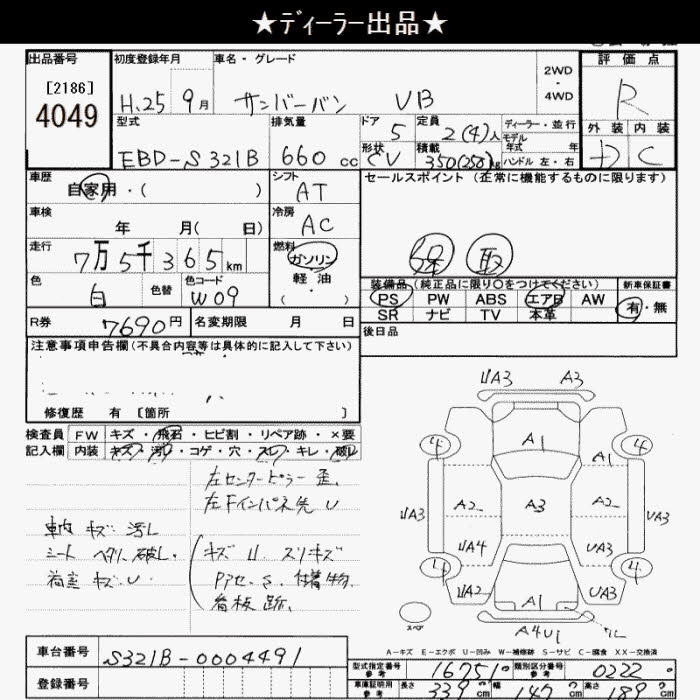 ★ディーラー出品★
出品番号 初度登録年月 車名・グレード 評価点
[2186] 4049 H.25 9月 サンバーバン VB 2WD・4WD R
型式 排気量 ドア 定員 ディーラー・並行 外装 内装
EBD-S321B 660cc 5 2(4)人 モデル年式 年 C
形状 CV 積載 350(250)kg ハンドル 左・右
車歴 シフト セールスポイント (正常に機能するものに限ります)
自家用・( ) AT
車検 年 月( 日) 冷房 AC
走行 7万5千365km 燃料 ガソリン 保 取
軽油・( )
色 白 色替 色コード W09
装備品(純正品に限り○をつけてください) 新車保証書
PS PW ABS エアB AW 有・無
SR ナビ TV 本革
R券 7690円 名変期限 月 日 後日品
注意事項申告欄(不具合内容等は具体的に記入して下さい)
修復歴 有 [箇所 ]
検査員 FW キズ・飛石・ヒビ割・リペア跡・×要
記入欄 内装 キズ・汚レ・コゲ・穴・スレ・キレ・破レ
左センターピラー 歪
左Fインパネ先 U
車内 キズ 汚レ
シート ヘタリ 破レ
荷室 キズ U
キズ U スリキズ
Pアセ、S、付着物
看板跡
UA3 A3
4 A1 4
A1
UA3 A2 A3 A2 UA3
UA4 UA3
4 UA2 UA3 4
A1
スペア A4U1
A-キズ E-エクボ U-凹み W-補修跡 S-サビ C-腐食 XX-交換済
車台番号 S321B-0004491
登録番号
型式指定番号 参考 16751 類別区分番号 参考 0222
車庫証明用 参考 長さ 339cm 幅 147cm 高さ cm